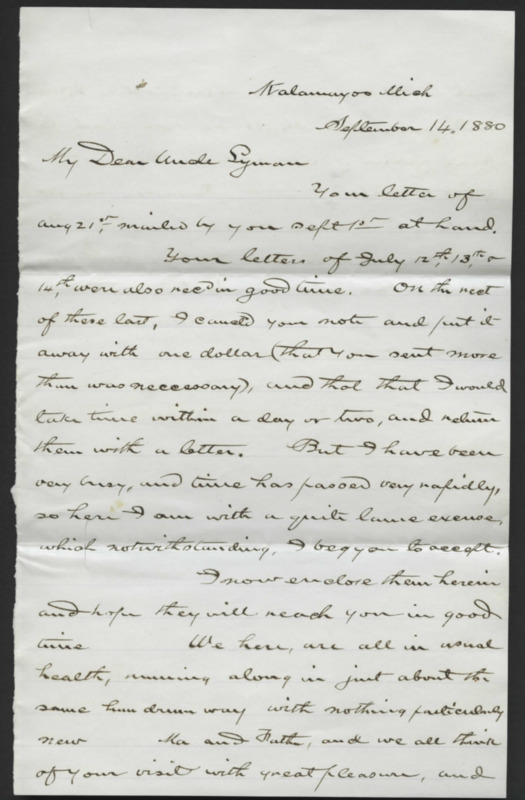 Kalamazoo Mich
September 14, 1880
My Dear Uncle Lyman
Your letter of
Aug 21st, mailed by you Sept 1st at hand.
Your letters of July 12th, 13th, &
14th, were also rec'd in good time. On the rect
of these last, I cancld your note and put it
away with one dollar (that you sent more
than was neccessary), and thot that I would
take time within a day or two, and return
them with a letter. But I have been
very busy, and time has passed very rapidly,
so here I am with a quite lame excuse,
which notwithstanding, I beg you to accept.
I now enclose them herein
and hope they will reach you in good
time We here, are all in usual
health, running along in just about the
same hum drum way with nothing particularly
new Ma and Father, and we all think
of your visit with great pleasure, and